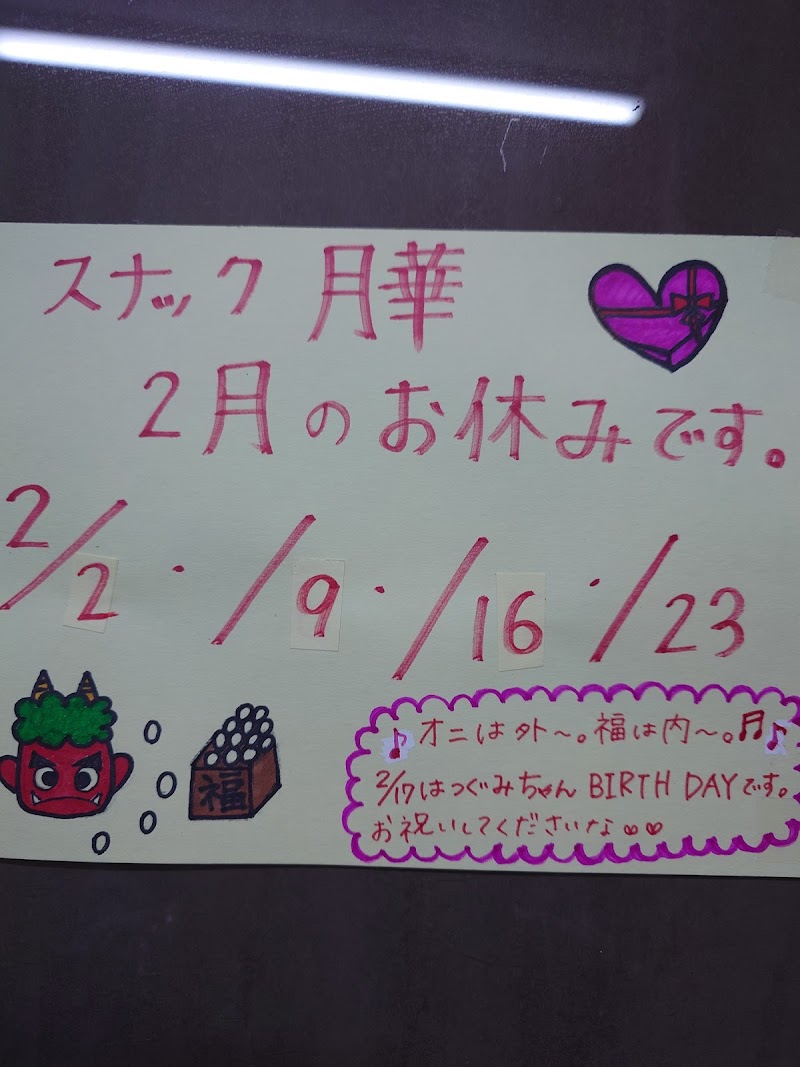 スナック 月華
2月のお休みです。
2/2・/9・/16・/23
福
♪オニは外〜。福は内〜。♬♪
2/17はつぐみちゃん BIRTH DAYです。
お祝いしてくださいな♡♡